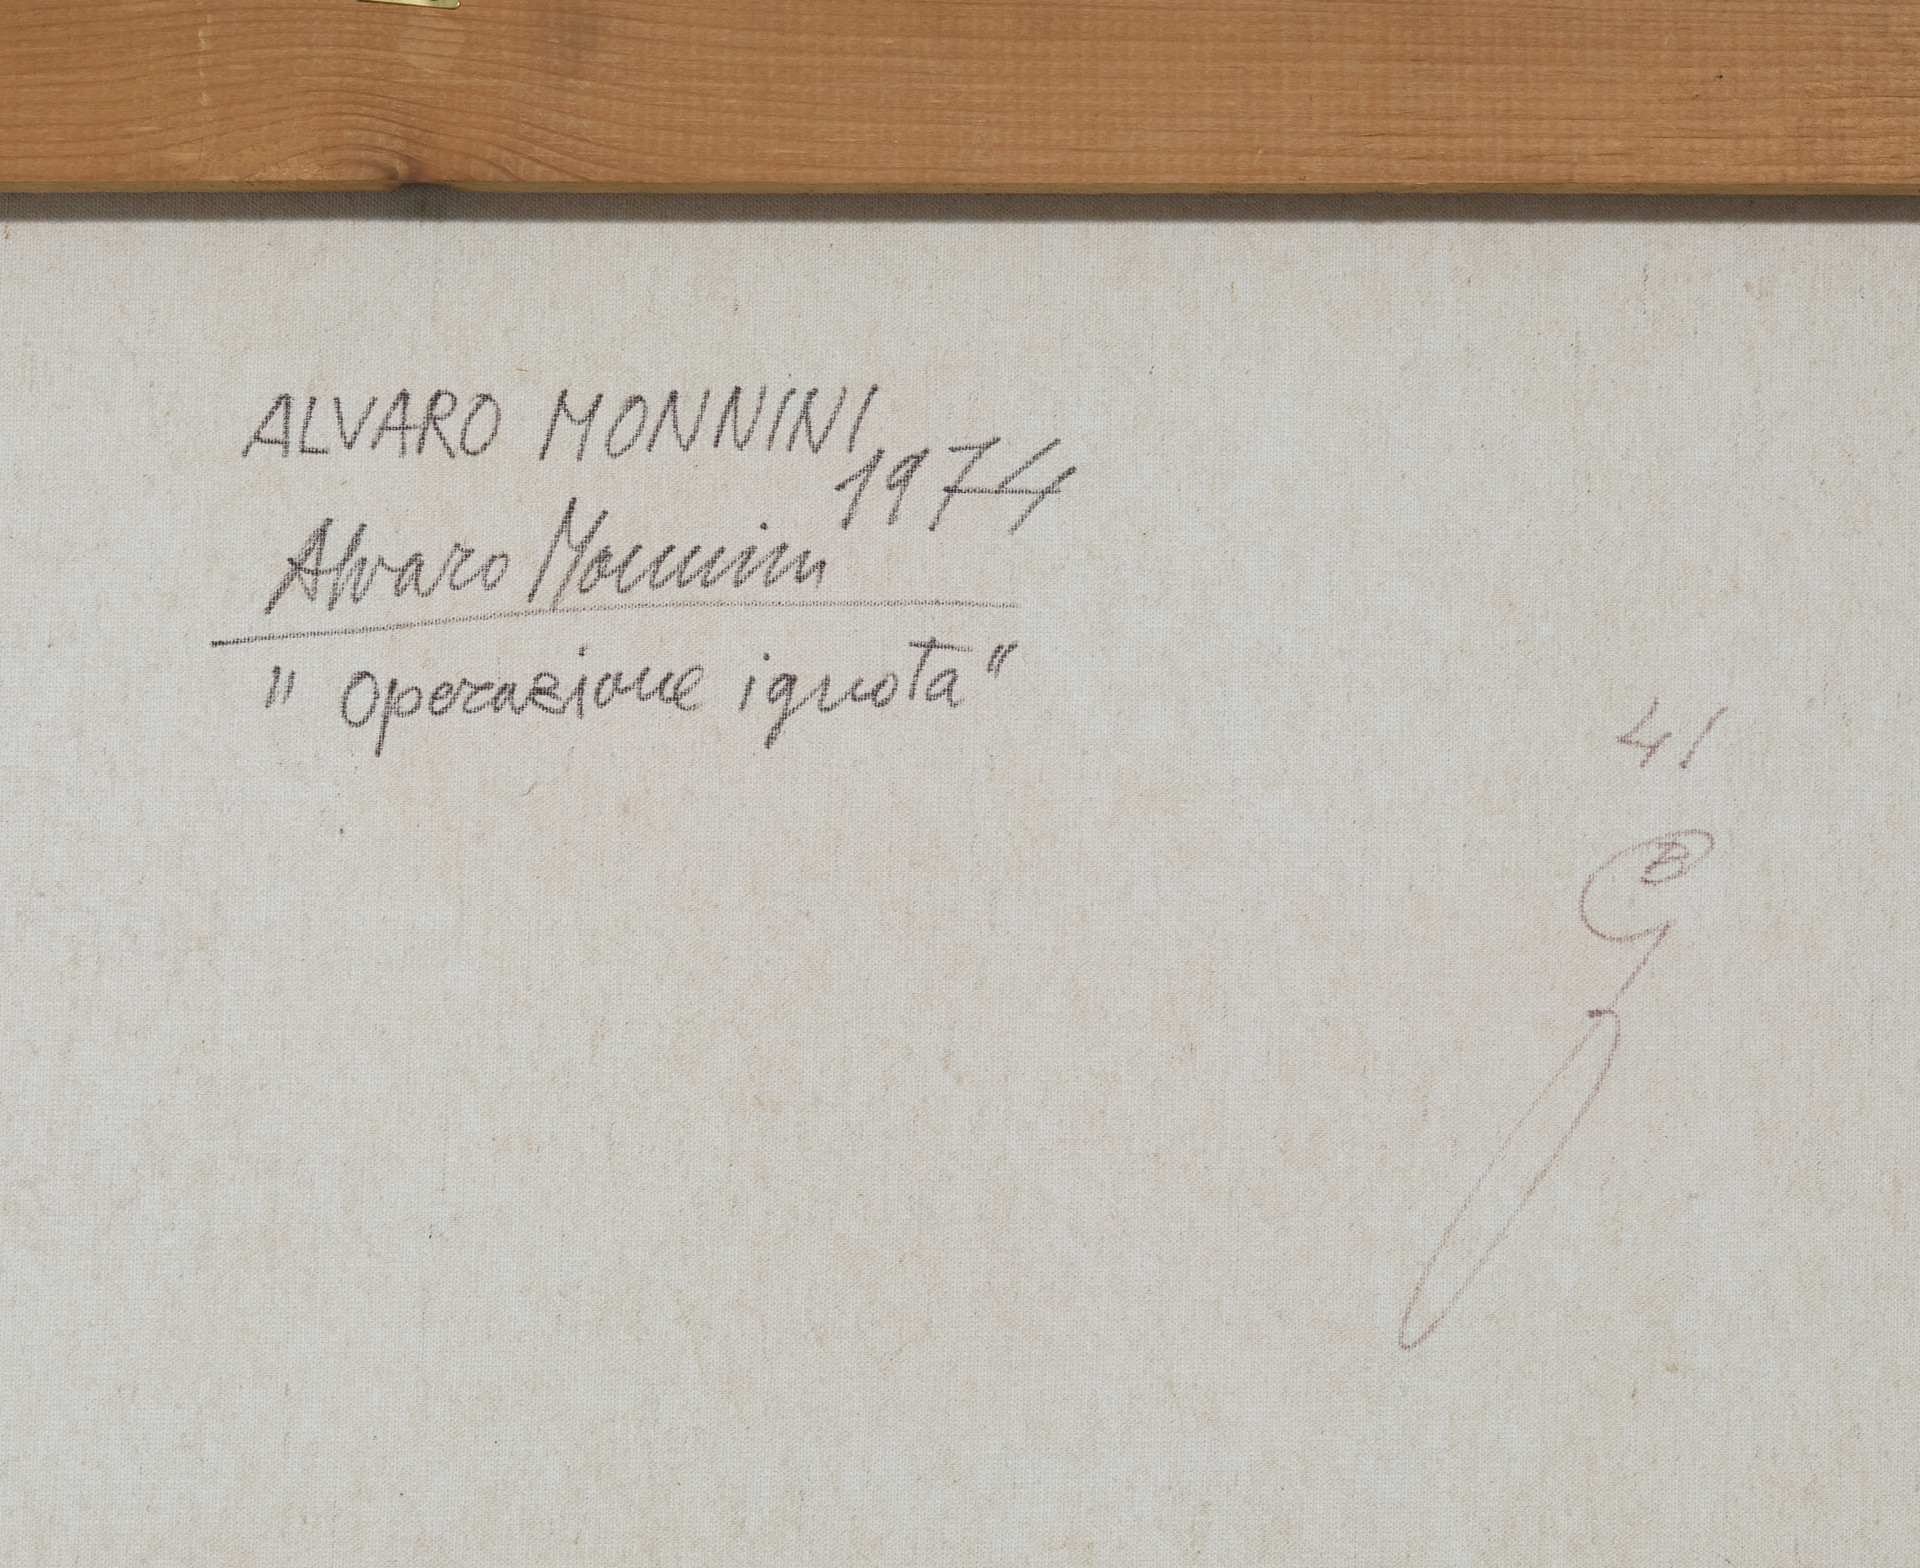 ALVARO MONNINI
1974
Alvaro Monnini
"Operazione ignota"
41